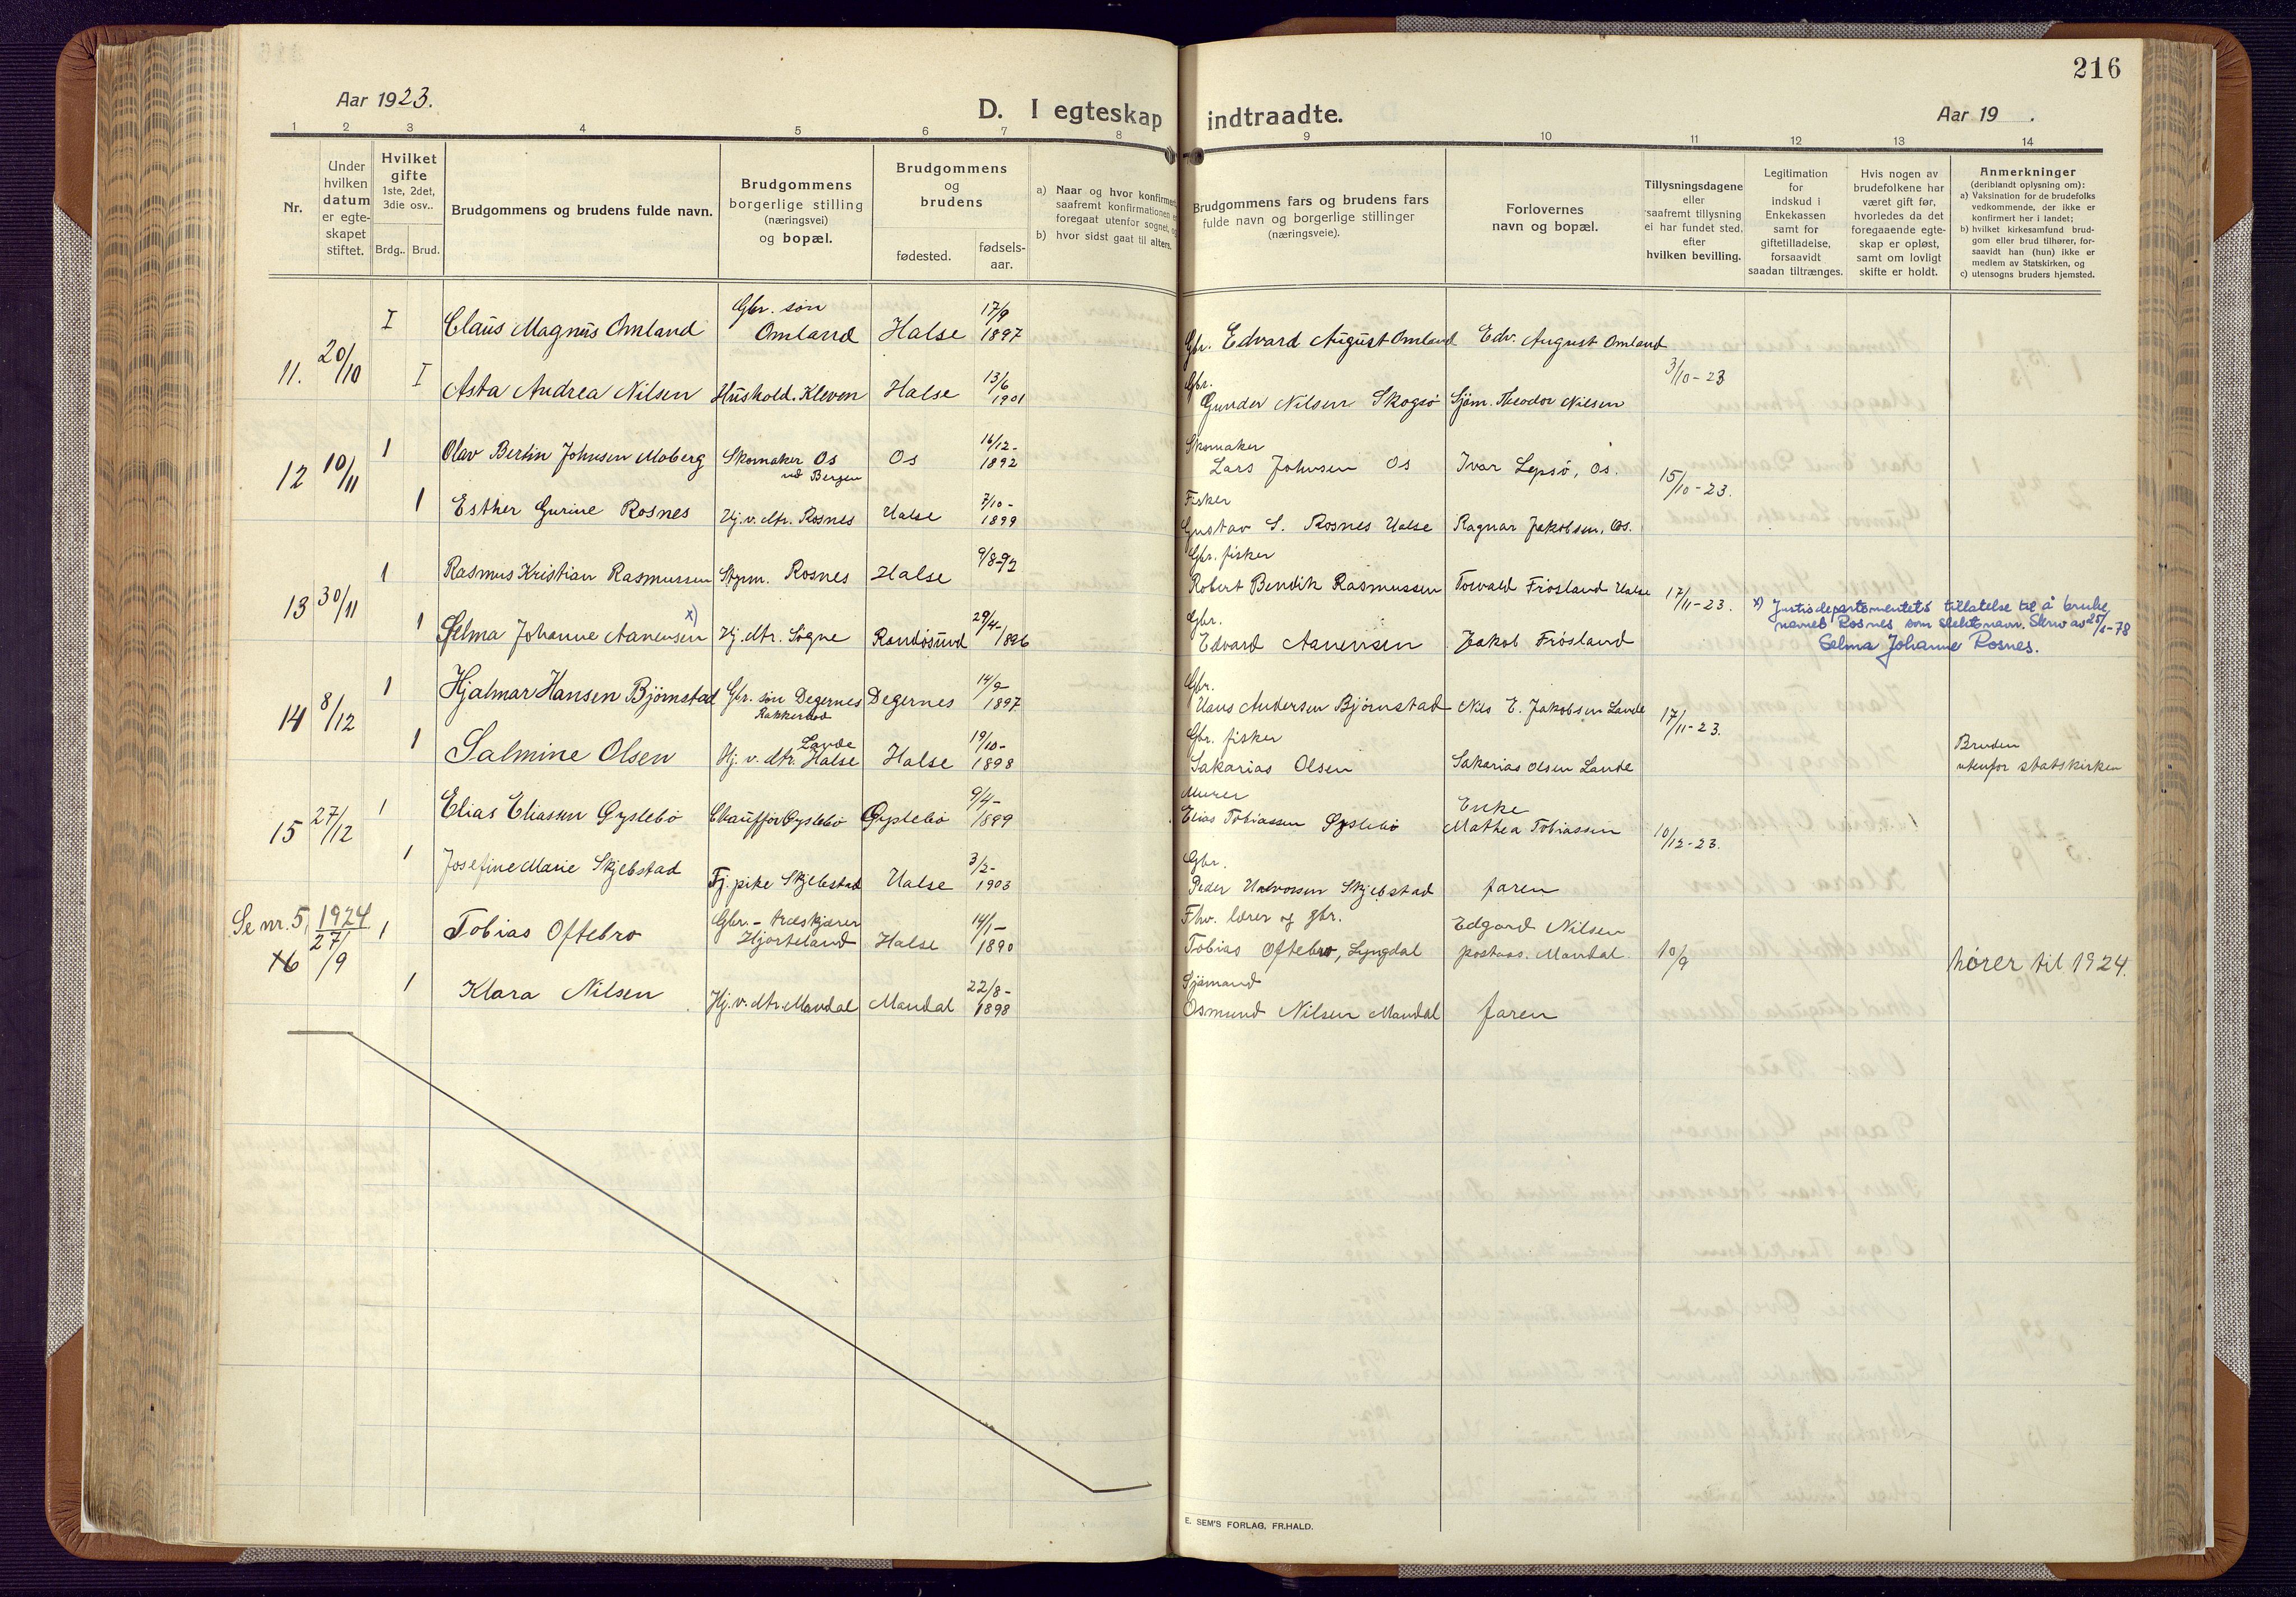 216
Aar 1923.
D. I egteskap indtraadte.
Aar 19 .
1 2 3 4 5 6 7 8 9 10 11 12 13 14
Nr.
Under hvilken datum er egte-skapet stiftet.
Hvilket gifte 1ste, 2det, 3die osv..
Brdg.. Brud.
Brudgommens og brudens fulde navn.
Brudgommens borgerlige stilling (næringsvei) og bopæl.
Brudgommens og brudens
fødested.
fødsels-aar.
a) Naar og hvor konfirme
saafremt konfirmationen e
foregaat utenfor sognet, o
b) hvor sidst gaat til alters.
Brudgommens fars og brudens fars
fulde navn og borgerlige stillinger
(næringsveie).
Forlovernes
navn og bopæl.
Tillysningsdagene
eller
saafremt tillysning
ei har fundet sted,
efter
hvilken bevilling.
Legitimation
for
indskud i
Enkekassen
samt for
giftetilladelse,
forsaavidt
saadan tiltrænges.
Hvis nogen av
brudefolkene har
været gift før,
hvorledes da det
foregaaende egte-
skap er opløst,
samt om lovligt
skifte er holdt.
Anmerkninger
(deriblandt oplysning om):
a) Vaksination for de brudefolks
vedkommende, der ikke er
konfirmert her i landet;
b) hvilket kirkesamfund brud-
gom eller brud tilhører, for-
saavidt han (hun) ikke er
medlem av Statskirken, og
c) utensogns bruders hjemsted.
11. 20/10 I Claus Magnus Omland Gbr. søn Omland Halse 17/9 1897 Gbr. Edvard August Omland Edv. August Omland 3/10-23
I Asta Andrea Nilsen Hushold. Kleven Halse 13/6 1901 Gbr. Gunder Nilsen Skogsø Sjøm. Theodor Nilsen
12 10/11 1 Olav Bertin Johnsen Moberg Skomaker Os ved Bergen Os 16/12- 1892 Skomaker Lars Johnsen Os Ivar Lepsö, Os. 15/10-23.
1 Esther Gurine Rosnes Hj. v. Mr. Rosnes Halse 7/10- 1899 Fisker Gustav S. Rosnes Halse Ragnar Jakobsen, Os.
13 30/11 1 Rasmus Kristian Rasmussen Styrm. Rosnes Halse 9/8-92 Gbr. fisker Robert Bendik Rasmussen Torvald Frösland Halse 17/11-23.
1 Selma Johanne Aanensen x) Hj. Mr. Søgne Randøsund 29/4- 1896 Gbr. Edvard Aanensen Jakob Frösland
x) Justisdepartementets tillatelse til å bruke
navnet Rosnes som slektsnavn. Skriv av 25/ -78
Selma Johanne Rosnes.
14 8/12 1 Hjalmar Hansen Bjørnstad Gbr. søn Degernes Rakkestad Degernes 14/9- 1897 Gbr. Hans Andersen Bjørnstad Nils E. Jakobsen Lande 17/11-23.
1 Salmine Olsen Hj. v. Mr. Lande Halse Halse 19/10- 1898 Gbr. fisker Sakarias Olsen Sakarias Olsen Lande Bruden utenfor statskirken
15 27/12 1 Elias Eliassen Øyslebö Chauffør Øyslebö Øyslebö 9/4- 1899 Murer Elias Tobiassen Øyslebö Enke Mathea Tobiassen 10/12-23.
1 Josefine Marie Skjebstad Tj. pike Skjebstad Halse 3/2- 1903 Gbr. Peder Halvorsen Skjebstad faren
Se nr. 5, 1924
16 27/9 1 Tobias Oftebro Gbr.- træskjærer Hjorteland Halse 14/1- 1890 Fhv. lærer og gbr. Tobias Oftebro, Lyngdal Edgard Nilsen postass. Mandal 10/9 hører til 1924.
1 Klara Nilsen Hj. v. Mr. Mandal Mandal 22/8- 1898 Sjømand Osmund Nilsen Mandal faren
E. SEM'S FORLAG, FR.HALD.